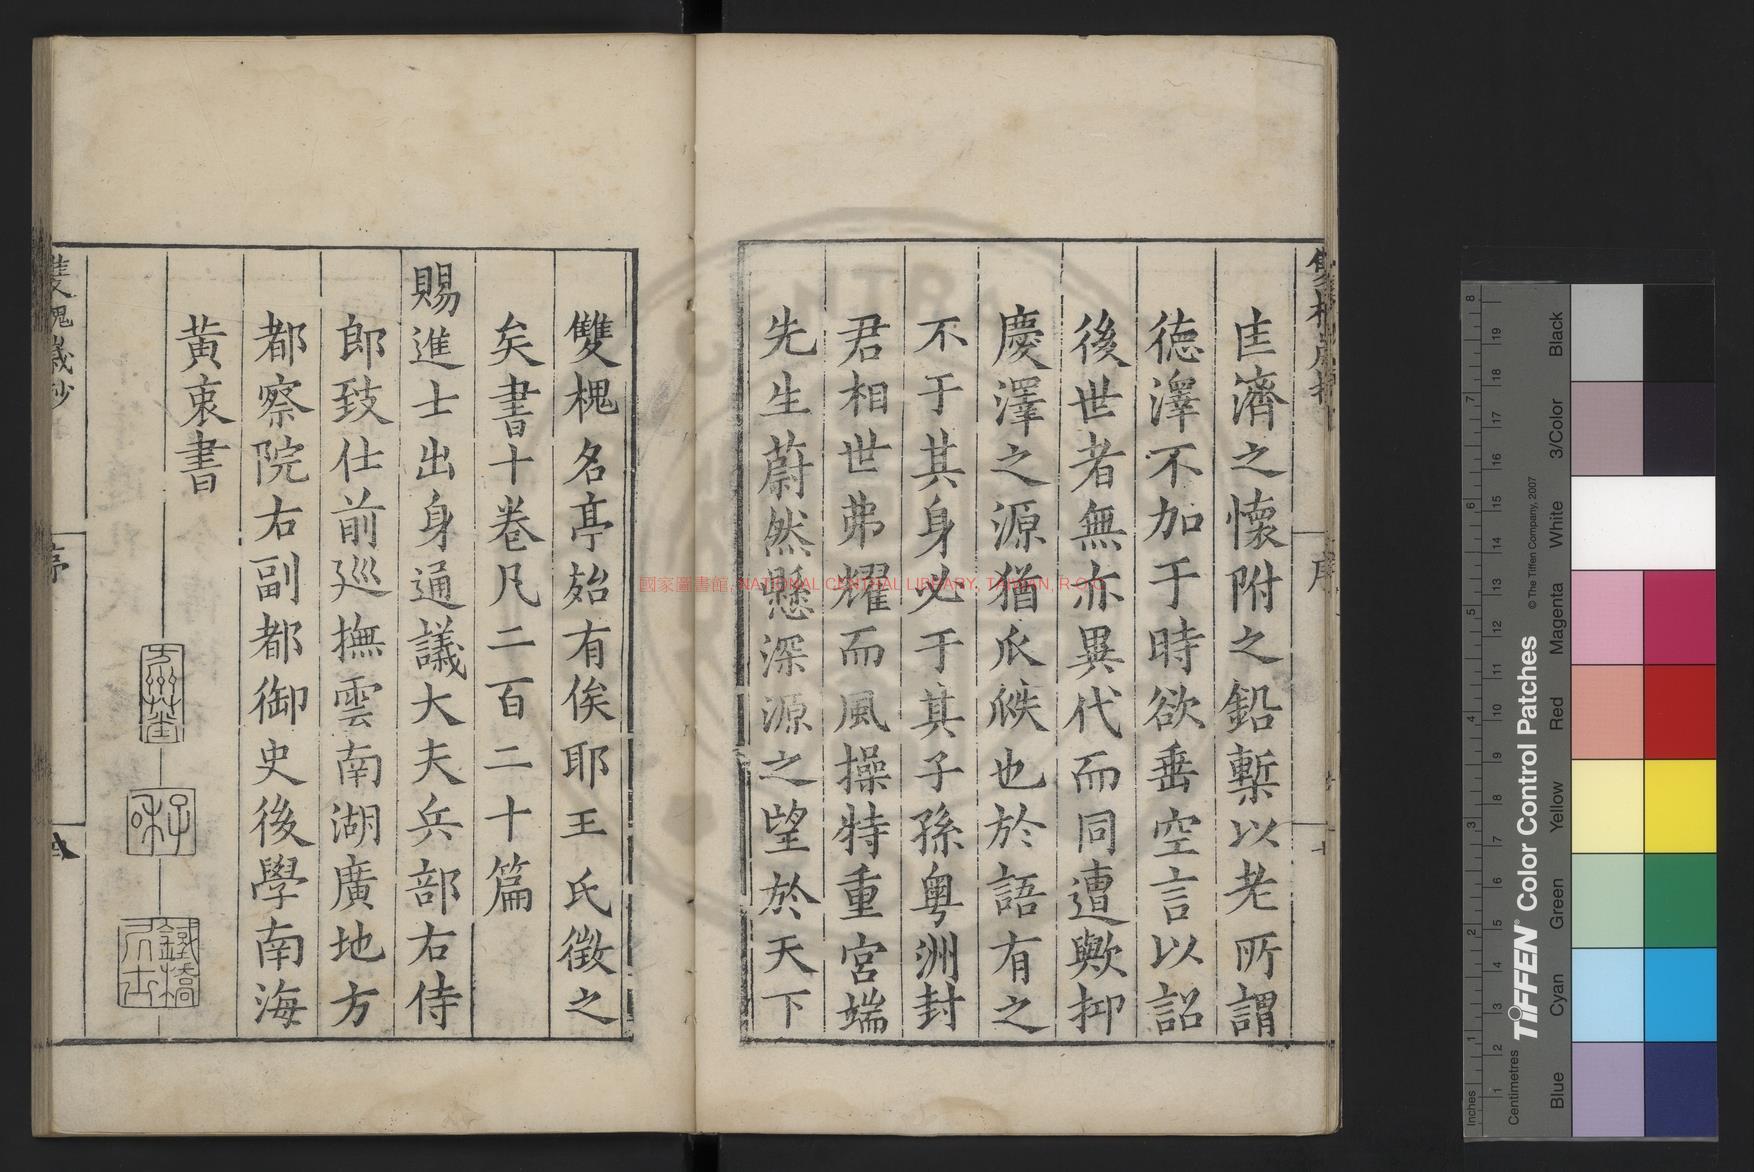 匡濟之懷附之鉛槧以老所謂
德澤不加于時欲垂空言以詔
後世者無亦異代而同遭歟抑
慶澤之源猶𠂢𠋫也於語有之
不于其身必于其子孫粵洲封
君相世弗燿而風操特重宮端
先生蔚然懸深源之望於天下
雙槐名亭始有俟耶王氏徵之
矣書十卷凡二百二十篇
賜進士出身通議大夫兵部右侍
郎致仕前巡撫雲南湖廣地方
都察院右副都御史後學南海
黃衷書
子和
鐵橋
雙槐歲抄
序
國家圖書館, NATIONAL CENTRAL LIBRARY, TAIWAN, R.O.C
Inches
Centimetres
TIFFEN Color Control Patches
© The Tiffen Company, 2007
Blue
Cyan
Green
Yellow
Red
Magenta
White
3/Color
Black